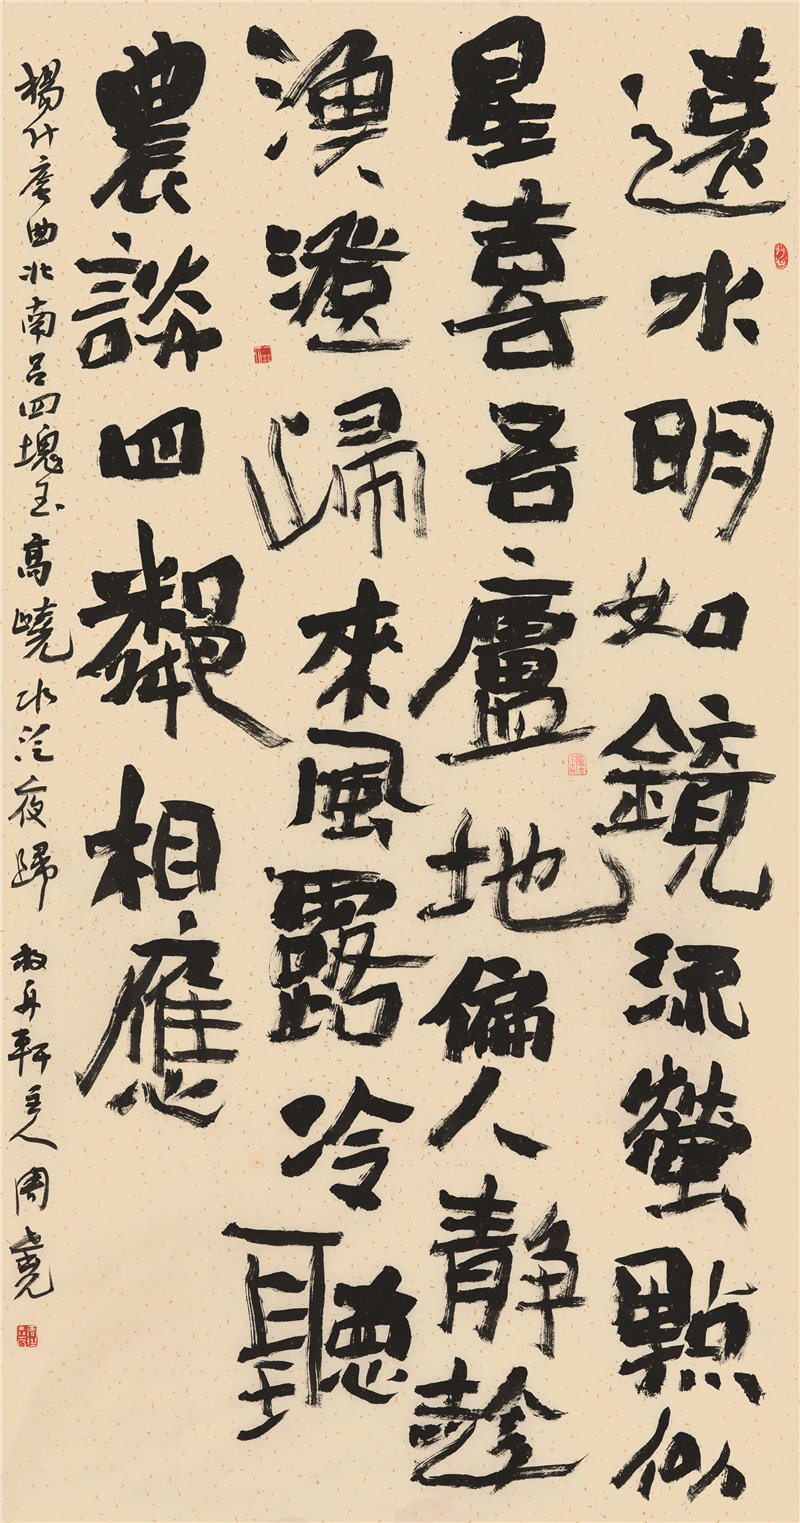 遠水明如鏡流螢點似
星喜吾廬地偏人靜趁
漁澄歸來風露冷聽
農談四鄰相應
楊升庵曲北南呂四塊玉高嶢水泛夜歸 舟軒主人周堯